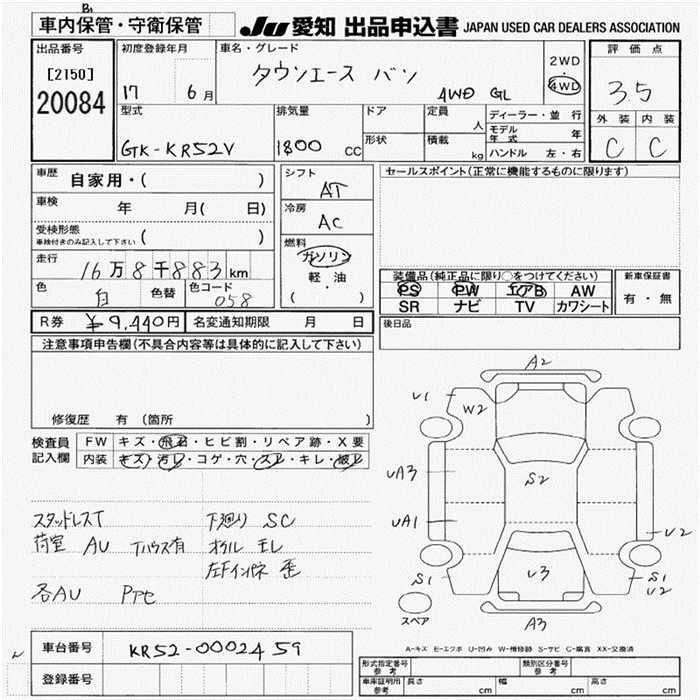 B1
車内保管・守衛保管
JU 愛知 出品申込書 JAPAN USED CAR DEALERS ASSOCIATION
出品番号 初度登録年月 車名・グレード 2WD 評価点
[2150] 17 6月 タウンエース バン ・ 3.5
20084 4WD GL 4WD
型式 排気量 ドア 定員 人 ディーラー・並行 外装 内装
GK-KR52V 1800 CC 形状 積載 kg モデル年式 年 C C
ハンドル 左・右
車歴 自家用・( ) シフト AT セールスポイント(正常に機能するものに限ります)
車検 年 月( 日) 冷房 AC
受検形態 ( )
車検付きのみ記入して下さい
燃料 ガソリン
走行 16万8千883km 軽・油
( )
色 白 色替 色コード 058
装備品(純正品に限り○をつけてください) 新車保証書
PS PW エアB AW 有・無
SR ナビ TV カワシート
R券 ¥9,440円 名変通知期限 月 日 後日品
注意事項申告欄(不具合内容等は具体的に記入して下さい)
修復歴 有 (箇所 )
検査員 FW キズ・飛石・ヒビ割・リペア跡・X要
記入欄 内装 キズ・汚レ・コゲ・穴・スレ・キレ・破レ
スタッドレスT 下廻り SC
荷室 AU Tハウス有 オイル モレ
左Fインパネ 歪
各AU
A2
U1
W2
UA3
S2
UA1
U2
S1
U3
S1
U2
スペア
A3
A-キズ E-エクボ U-凹み W-補修跡 S-サビ C-腐食 XX-交換済
車台番号 KR52-0002459
登録番号
形式指定番号 参考 類別区分番号 参考
車庫証明用 参考 長さ cm 幅 cm 高さ cm